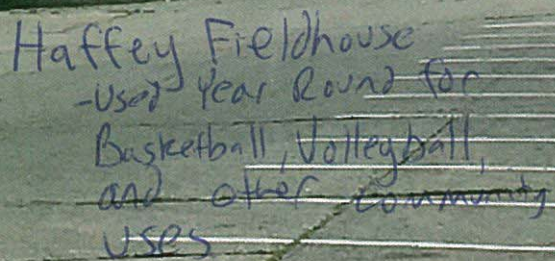 Haffey Fieldhouse
-Used Year Round for
Basketball, Volleyball,
and other community
uses